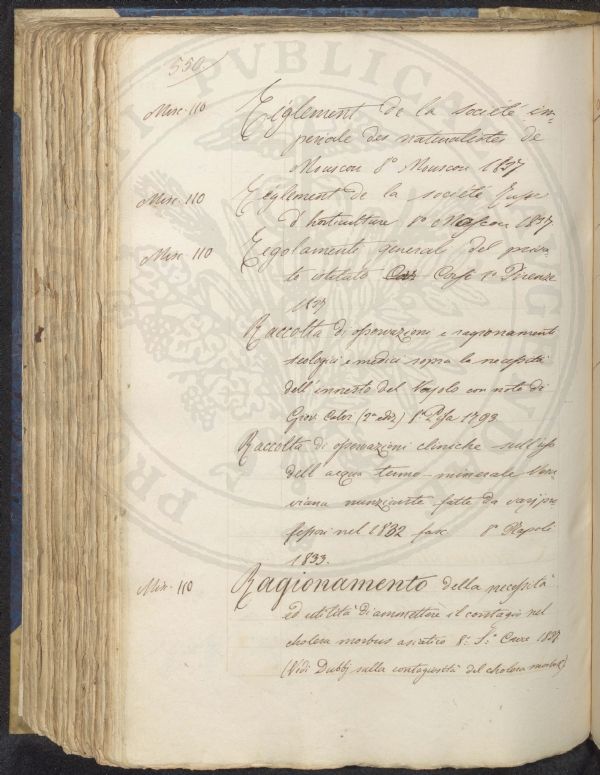 550
Misc. 110 Réglement de la Societé im-
periale des naturalistes de
Mouscou 8° Mouscou 1837
Misc. 110 Reglement de la société Russe
d'horticulture 8° Moscou 1837
Misc. 110 Regolamenti generali del priva-
to istituto Corsi 8° Firenze
1837
Raccolta di osservazioni e ragionamenti
teologici e medici sopra la necessità
dell'innesto del Vajolo con note di
Giov. Calvi (2a ediz) 8° Pisa 1793
Raccolta di osservazioni cliniche sull'uso
dell'acqua termo-minerale Vesu-
viana nunziante fatte da varj pro-
fessori nel 1832 fasc. 8° Napoli
1833.
Misc. 110 Ragionamento della necessità
ed utilità di ammettere il contagio nel
cholera morbus asiatico 8° 1837
(Vedi Dubbj sulla contagiosità del cholera morbus)
PUBLICA